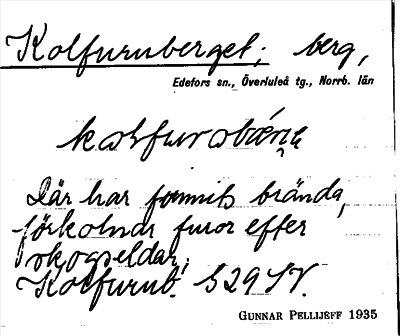 Kolfuruberget; berg,
Edefors sn., Överluleå tg., Norrb. län
Där har funnits brända,
förkolnade furor efter
skogseldar.
Kolfurub. S 29 SV.
GUNNAR PELLIJEFF 1935